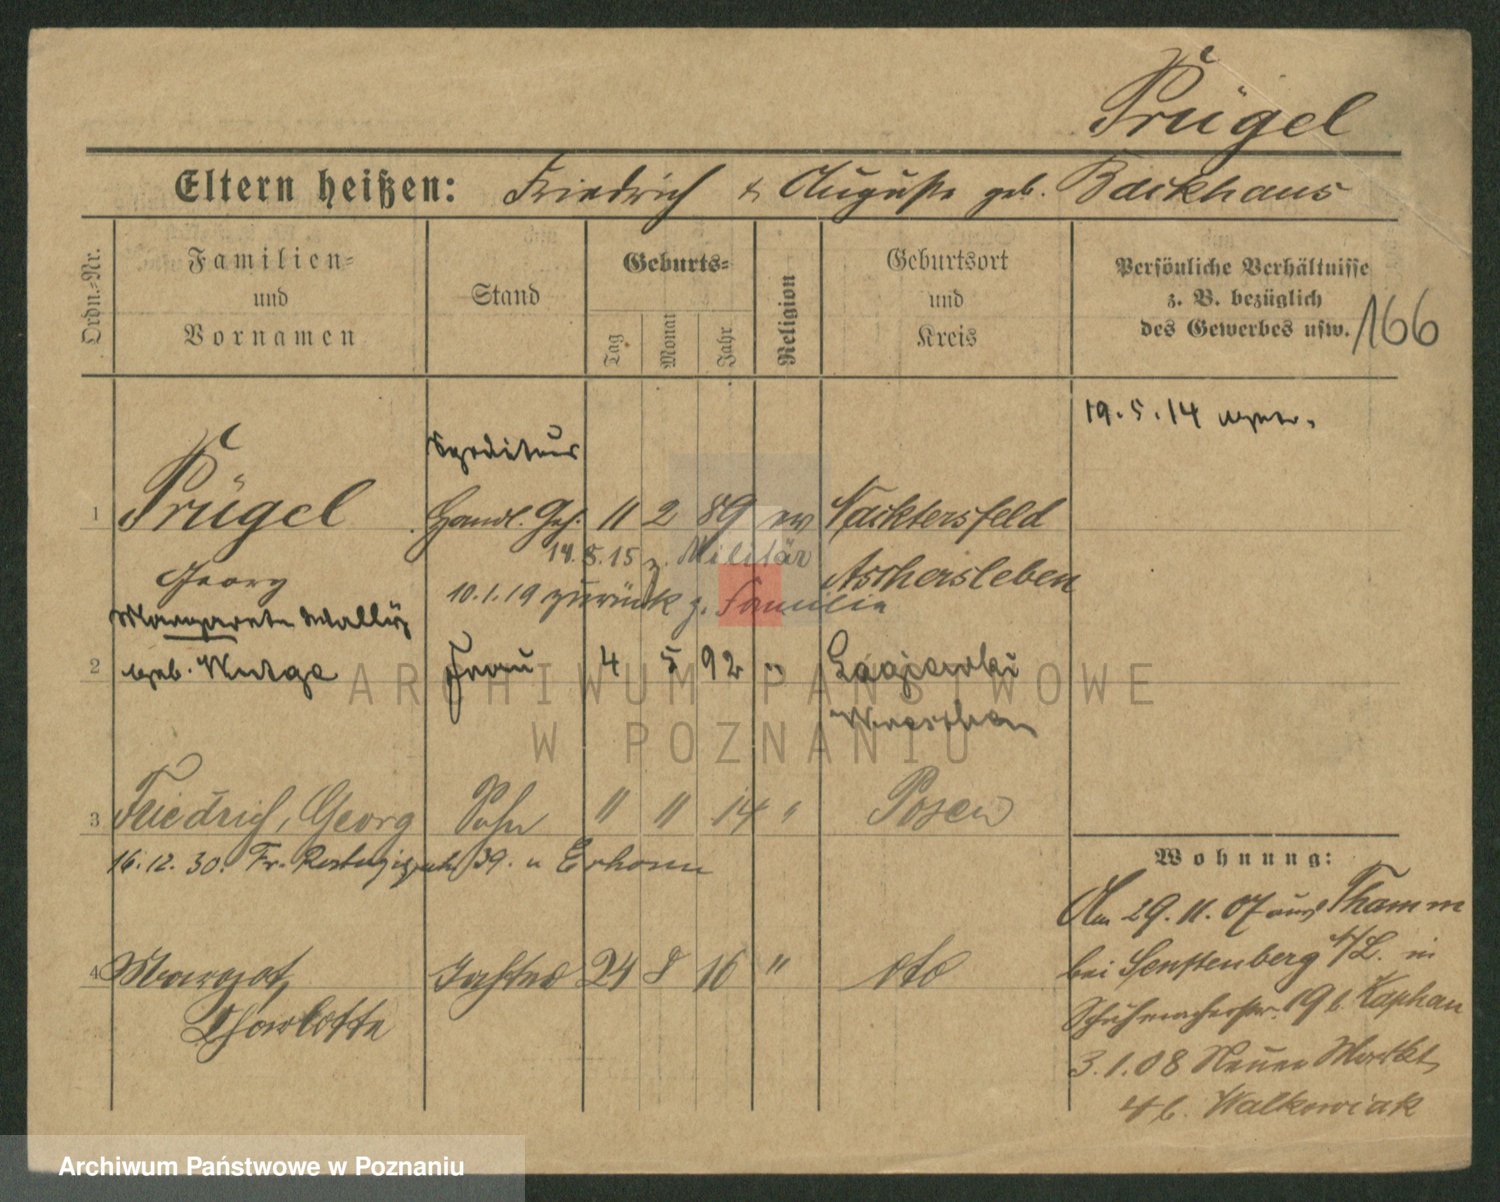 Prügel
Eltern heißen: Friedrich & Auguste geb. Backhaus
Ordn.-Nr.
Familien-
und
Vornamen
Stand
Geburts-
Tag
Monat
Jahr
Religion
Geburtsort
und
Kreis
Persönliche Verhältnisse
z. B. bezüglich
des Gewerbes usw.
166
19.5.14
Spediteur
1 Prügel Handl. Geh. 11 2 89 ev Nachtersfeld
14.5.15 z. Militär
Georg Aschersleben
10.1.19 zurück z. Familie
Margarete Wally
2 geb. Frau 4 5 92 "
Wreschen
3 Friedrich, Georg Sohn 11 11 14 " Posen
16.12.30. Fr. 39. u
4 Margot, Tochter 24 8 16 " dto
Charlotte
Wohnung:
Am 29.11.07 aus Thamm
bei Senftenberg N/L. in
Schuhmacherstr. 19 b. Kaphan
3.1.08 Neuer Markt
4 b. Walkowiak
ARCHIWUM PAŃSTWOWE
W POZNANIU
Archiwum Państwowe w Poznaniu